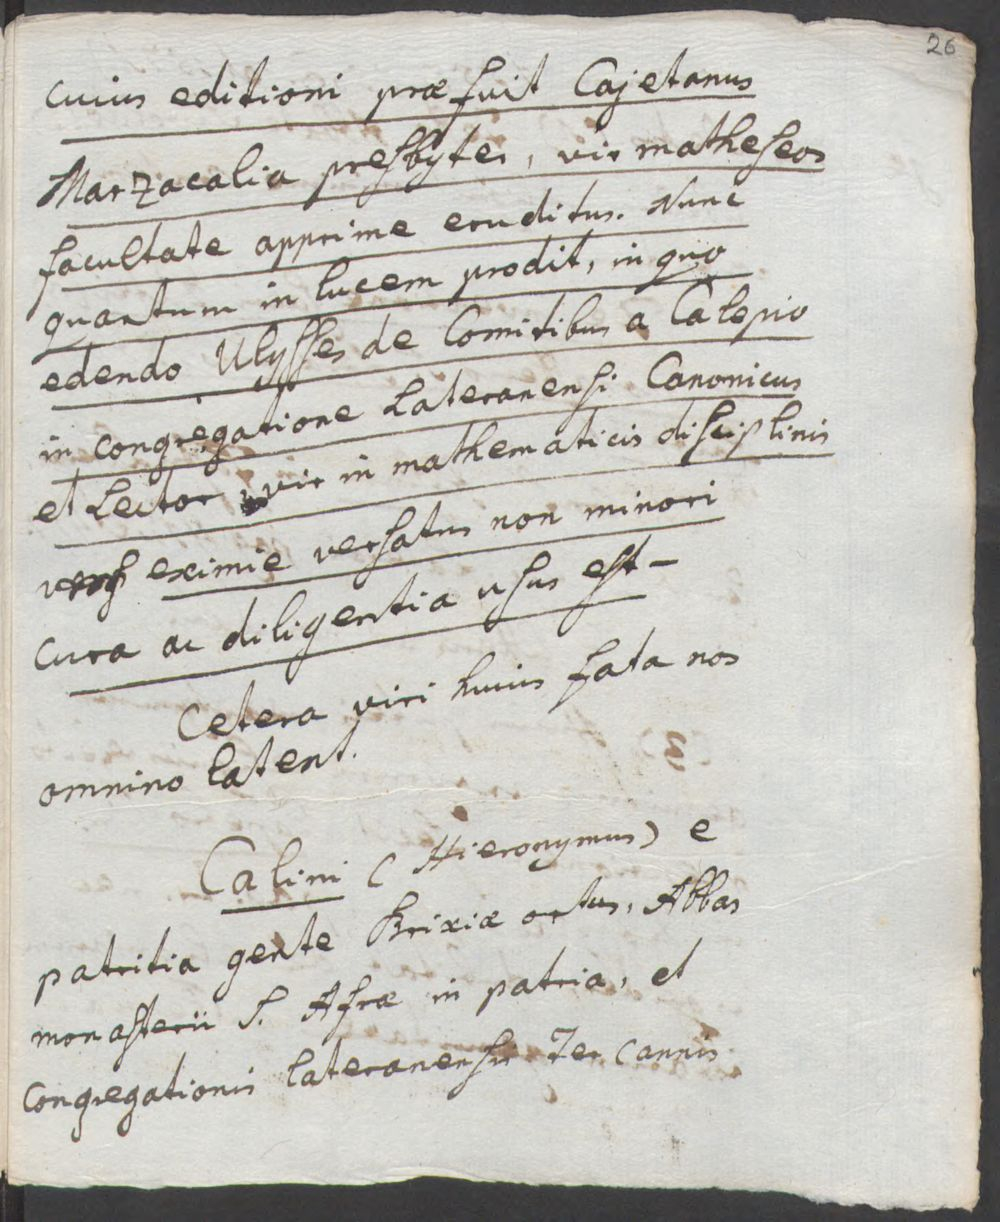 26
cuius editioni præfuit Cajetanus
Marzacalia presbyter, vir matheseos
facultate apprime eruditus. Nunc
quartum in lucem prodit, in quo
edendo Ulysses de Comitibus a Calepio
in congregatione Lateranensi Canonicus
et Lector, vir in mathematicis disciplinis
eximie versatus non minori
cura ac diligentia usus est -
Cetera viri huius fata nos
omnino latent.
Calini (Hieronymus) e
patritia gente Brixiæ ortus, Abbas
monasterii S. Afræ in patria, et
congregationis lateranensis Ter (annis